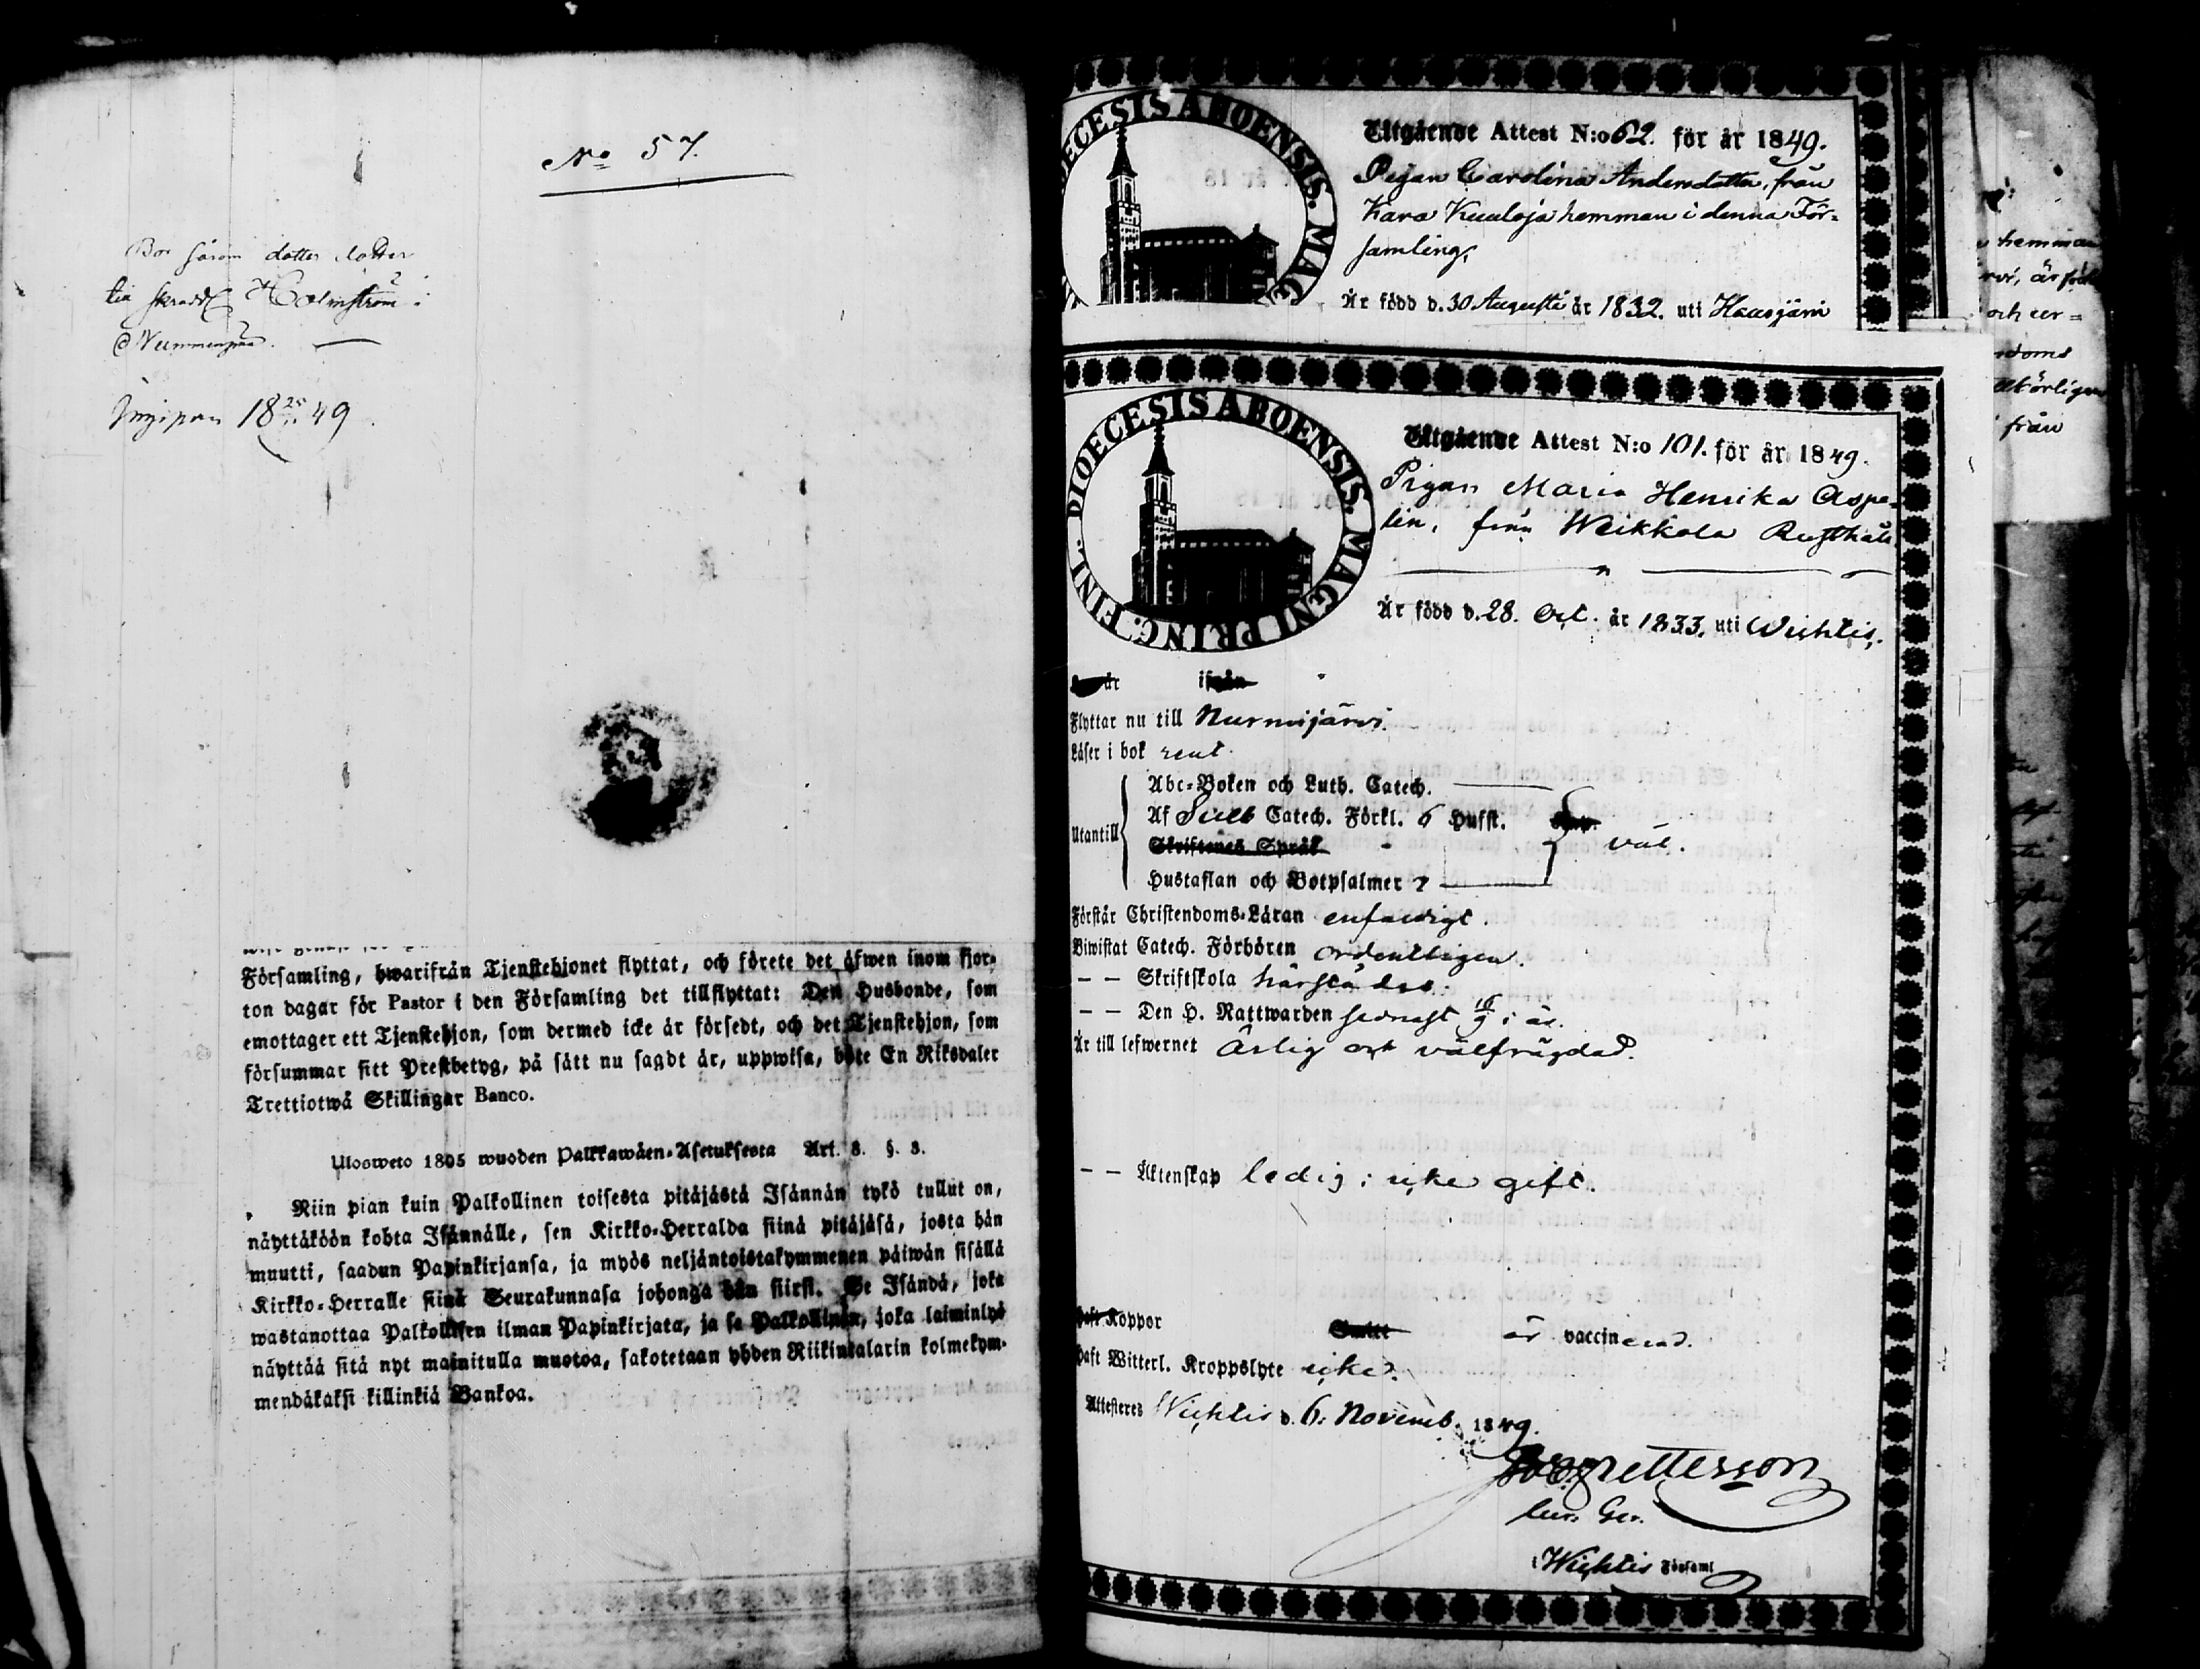 No 57.
Bor såsom dotter
Holmström i
Nummenpää.
18 25/11 49
Församling, hwarifrån Tjenstehjonet flyttat, och förete det äfwen inom fjor-
ton dagar för Pastor i den Församling det tillflyttat: Den Husbonde, som
emottager ett Tjenstehjon, som dermed icke är försedt, och det Tjenstehjon, som
försummar sitt Prestbetyg, på sätt nu sagdt är, uppwisa, böte En Riksdaler
Trettiotwå Skillingar Banco.
Ulosweto 1805 wuoden Palkkawäen-Asetuksesta Art. 8. §. 3.
Niin pian kuin Palkollinen toisesta pitäjästä Isännän tykö tullut on,
näyttäköön kohta Isännälle, sen Kirkko-Herralda siinä pitäjäsä, josta hän
muutti, saadun Papinkirjansa, ja myös neljäntoistakymmenen päiwän sisällä
Kirkko-Herralle siinä Seurakunnasa johonga hän siirsi. Se Isändä, joka
wastanottaa Palkollisen ilman Papinkirjata, ja se Palkollinen, joka laiminlyö
näyttää sitä nyt mainitulla muotoa, sakotetaan yhden Riikintalarin kolmekym-
mendäkaksi killinkiä Bankoa.
DIOECESIS ABOENSIS. MAG
Utgående Attest N:o 62. för år 1849.
Pigan Carolina Andersdotter, från
Kara Kuuloja hemman i denna För-
samling,
Är född d. 30 Augusti år 1832. uti Hausjärvi
DIOECESIS ABOENSIS. MAGNI PRINC. FINL.
Utgående Attest N:o 101. för år 1849.
Pigan Maria Henrika Aspe-
lin, från Weikkola Rusthåll
Är född d. 28. Oct. år 1833. uti Wichtis.
är ifrån
Flyttar nu till Nurmijärvi.
Läser i bok rent
Utantill
Abc-Boken och Luth. Catech.
Af Catech. Förkl. 6 Hufst.
Skriftenes Språk
väl.
Hustaflan och Botpsalmer
Förstår Christendoms-Läran enfaldigt.
Biwistat Catech. Förhören ordentligen.
— — Skriftskola härstädes.
— — Den H. Nattwarden sednast i år.
Är till lefwernet Ärlig och välfrägdad.
— — Äktenskap ledig; icke gift.
Haft Koppor Smitt är vaccinerad.
Haft Witterl. Kroppslyte icke.
Attesteres Wichtis d. 6. Novemb. 1849.
i Wichtis Församl.
hemman
och
från